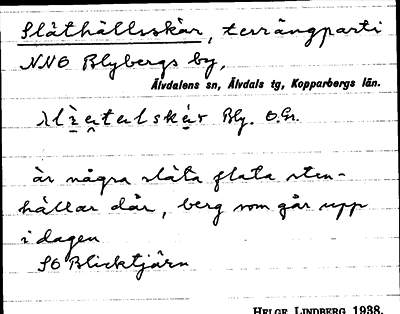 Släthällsskär, terrängparti
NNO Blybergs by,
Älvdalens sn, Älvdals tg, Kopparbergs län.
Bly. O.Gr.
är några släta flata sten-
hällar där, berg som går upp
i dagen
SO Blicktjärn
HELGE LINDBERG 1938.